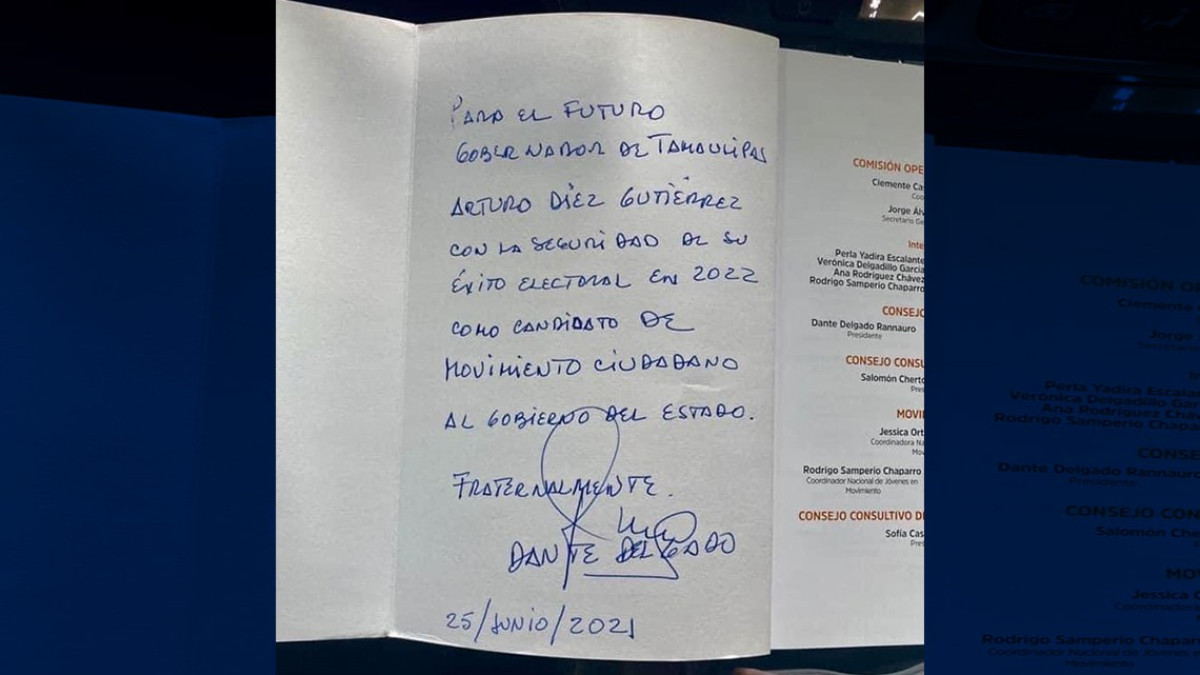 PARA EL FUTURO
GOBERNADOR DE TAMAULIPAS
ARTURO DÍEZ GUTIÉRREZ
CON LA SEGURIDAD DE SU
ÉXITO ELECTORAL EN 2022
COMO CANDIDATO DE
MOVIMIENTO CIUDADANO
AL GOBIERNO DEL ESTADO.
FRATERNALMENTE.
DANTE DELGADO
25/JUNIO/2021
COMISIÓN OPE
Clemente Cas
Coo
Jorge Álv
Secretario Ge
Inte
Perla Yadira Escalante
Verónica Delgadillo García
Ana Rodríguez Chávez
Rodrigo Samperio Chaparro
CONSEJO
Dante Delgado Rannauro
Presidente
CONSEJO CONSU
Salomón Cherto
Pres
MOVI
Jessica Ort
Coordinadora Na
Mov
Rodrigo Samperio Chaparro
Coordinador Nacional de Jóvenes en
Movimiento
CONSEJO CONSULTIVO DE
Sofía Cas
Pres